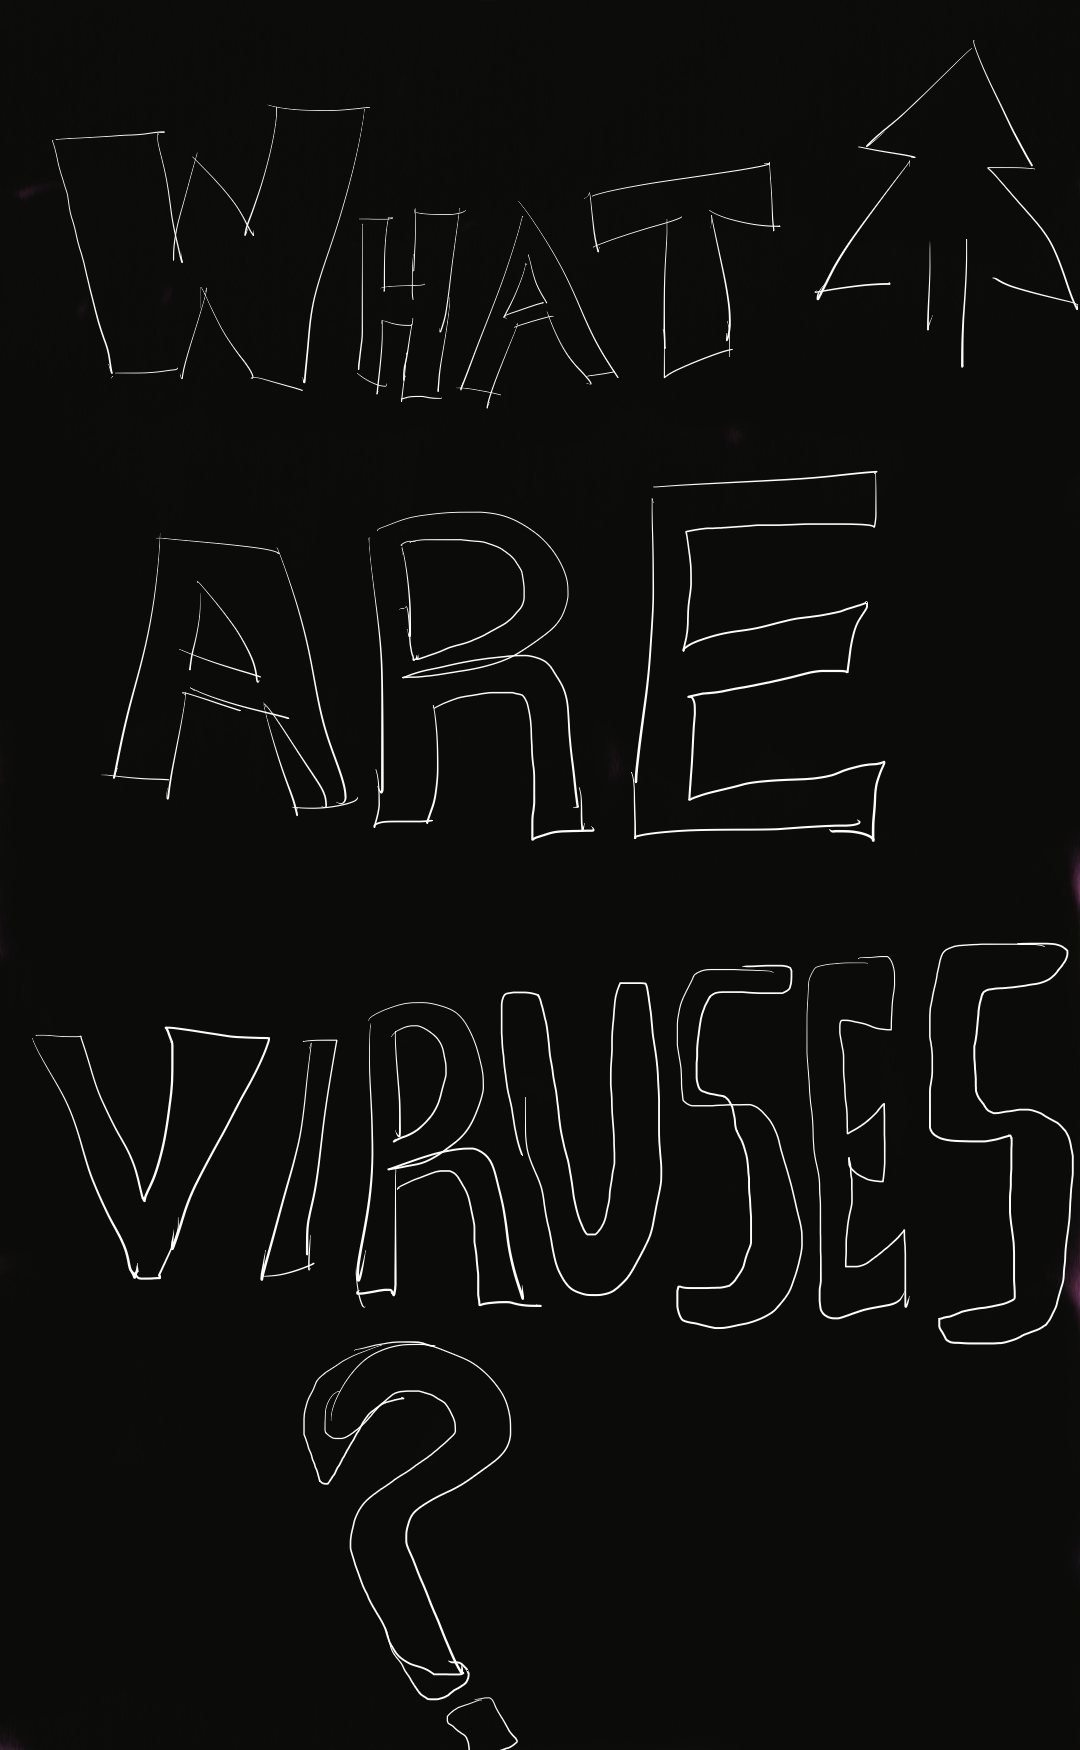 WHAT
ARE
VIRUSES
?